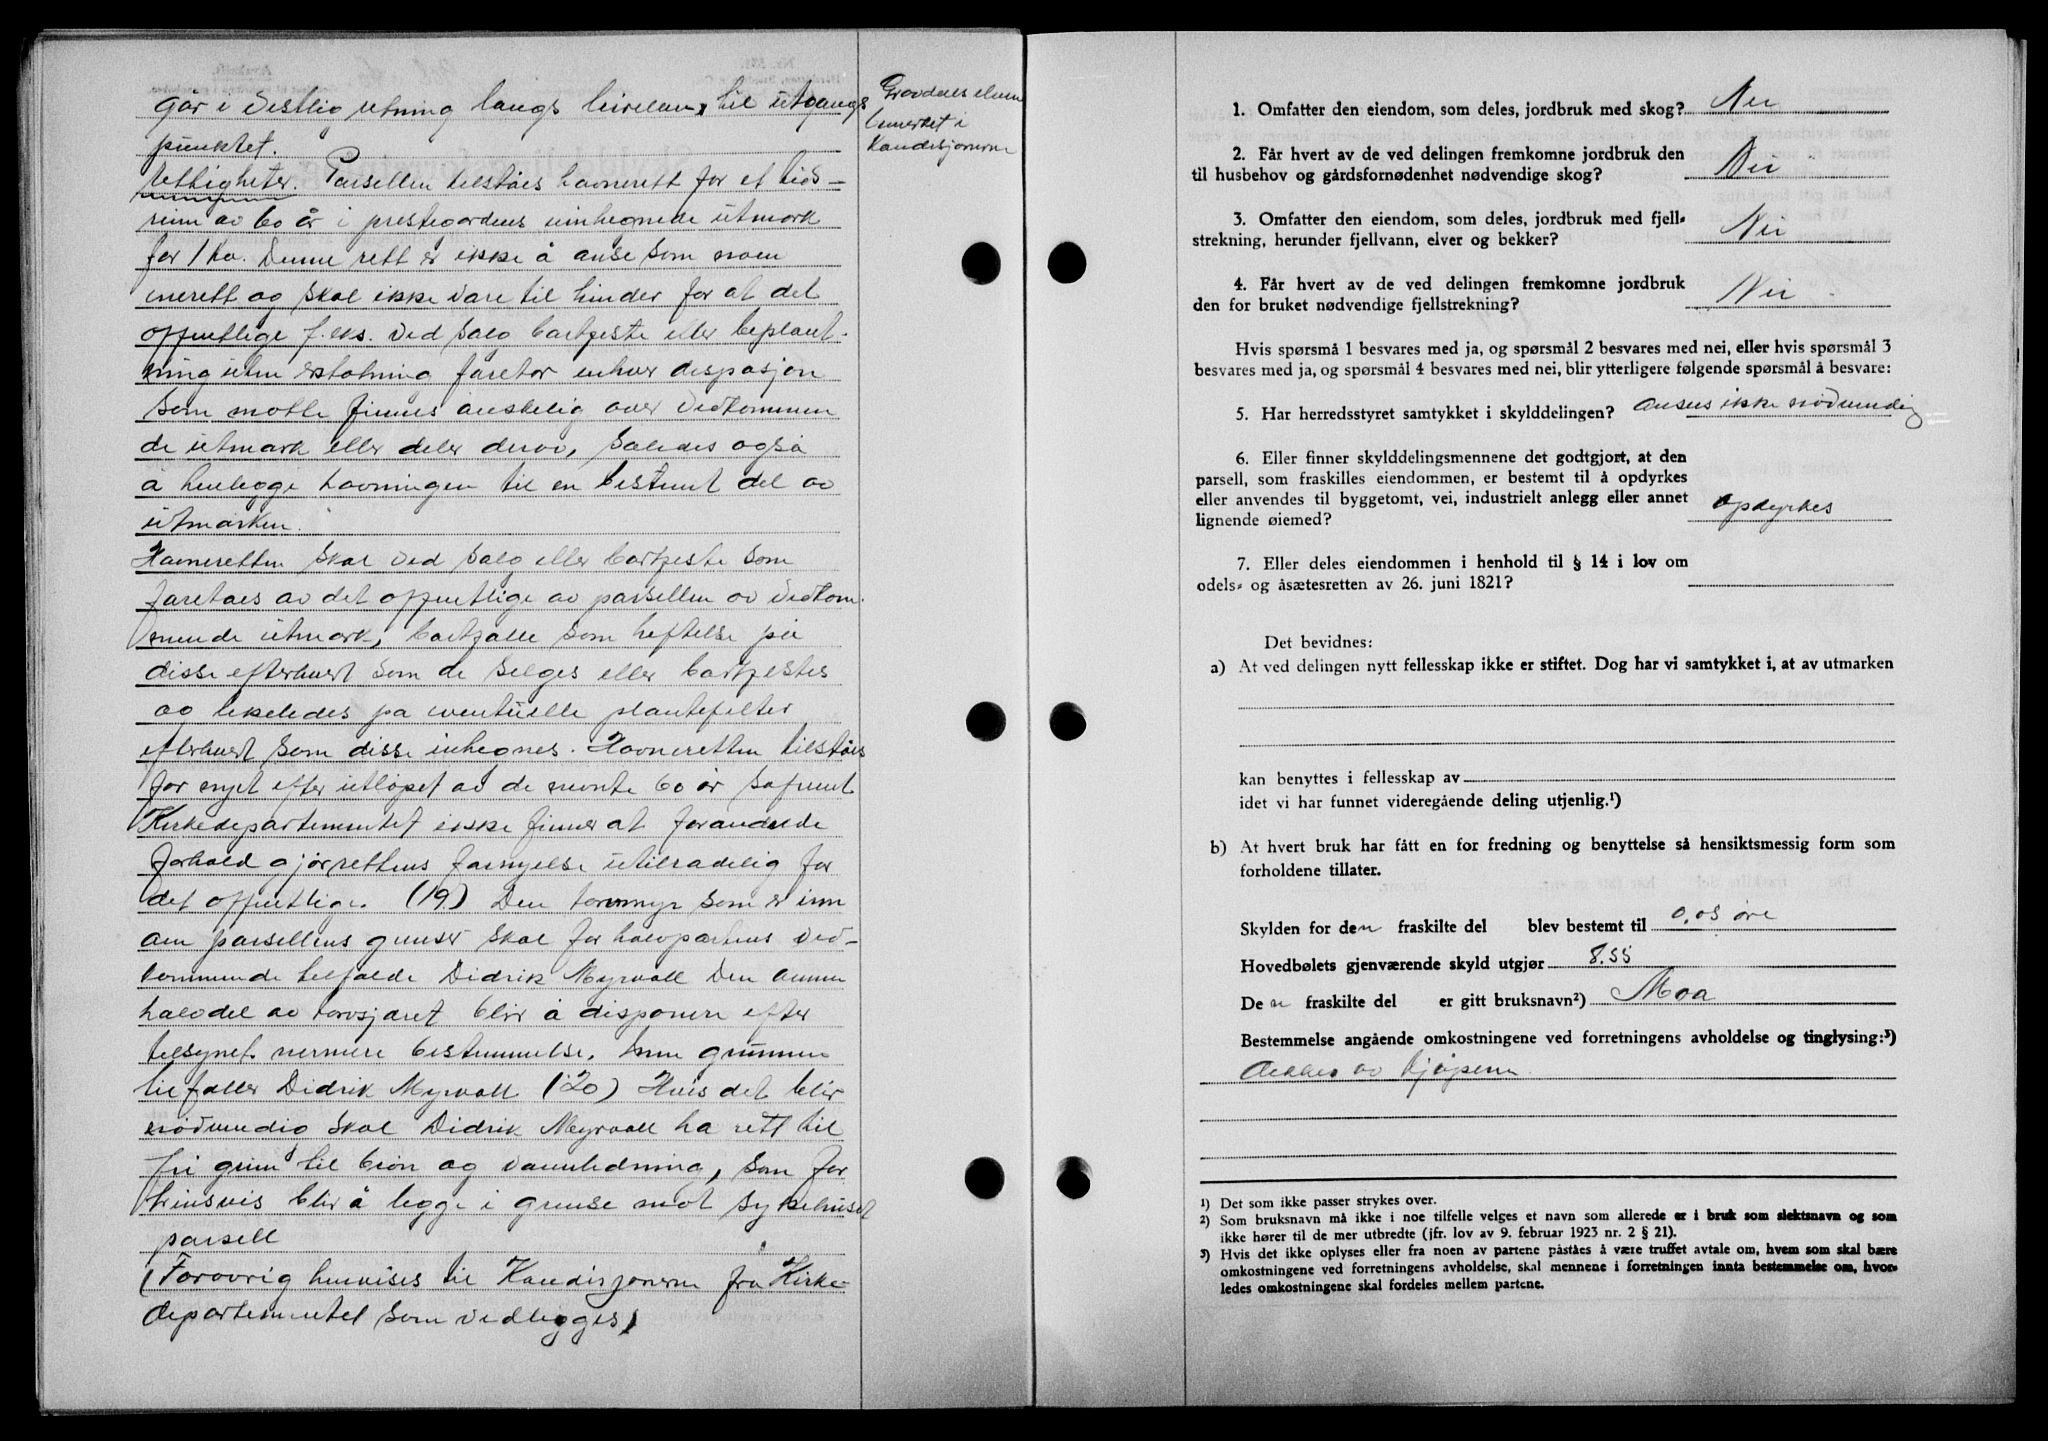 går i vestlig retning langs leirelven, til utgangs
punktet.
Rettigheter. Parsellen tilståes havnerett for et tids-
rum av 60 år i prestegardens uinhegnede utmark
for 1 ku. Denne rett er ikke å anse som noen
enerett og skal ikke være til hinder for at det
offentlige f. eks. ved salg bortfeste eller beplant-
ning uten erstatning foretar enhver disposisjon
som måtte finnes ønskelig over vedkommen
de utmark eller deler derav, således også
å henlegge havningen til en bestemt del av
utmarken.
Havneretten skal ved salg eller bortfeste som
foretaes av det offentlige av parseller av vedkom
mende utmark, bortfalle som heftelse på
disse efterhvert som de selges eller bortfestes
og likeledes på eventuelle plantefelter
efterhvert som disse inhegnes. Havneretten tilståes
for nyet efter utløpet av de nevnte 60 år såfremt
Kirkedepartementet ikke finner at forandrede
forhold gjør rettens fornyelse utilrådelig for
det offentlige. (19) Den torvmyr som er inn
om parsellens grenser skal for halvpartens ved-
kommende tilfalde Didrik Myrvoll Den annen
halvdel av torvskjæret blir å disponere efter
tilsynets nermere bestemmelse, men grunnen
tilfaller Didrik Myrvoll (20) Hvis det blir
nødvendig skal Didrik Myrvoll ha rett til
fri grunn til brøn og vannledning, som for
trinsvis blir å legge i grense mot sykehuset
parsell
(Forøvrig henvises til Kondisjonerne fra Kirke-
departementet som vedlegges)
Gravdalselven
bemerket i
Kondisjonerne
1. Omfatter den eiendom, som deles, jordbruk med skog? Nei
2. Får hvert av de ved delingen fremkomne jordbruk den
til husbehov og gårdsfornødenhet nødvendige skog? Nei
3. Omfatter den eiendom, som deles, jordbruk med fjell-
strekning, herunder fjellvann, elver og bekker? Nei
4. Får hvert av de ved delingen fremkomne jordbruk
den for bruket nødvendige fjellstrekning? Nei
Hvis spørsmå 1 besvares med ja, og spørsmål 2 besvares med nei, eller hvis spørsmål 3
besvares med ja, og spørsmål 4 besvares med nei, blir ytterligere følgende spørsmål å besvare:
5. Har herredsstyret samtykket i skylddelingen? ansees ikke nødvendig
6. Eller finner skylddelingsmennene det godtgjort, at den
parsell, som fraskilles eiendommen, er bestemt til å opdyrkes
eller anvendes til byggetomt, vei, industrielt anlegg eller annet
lignende øiemed? opdyrkes
7. Eller deles eiendommen i henhold til § 14 i lov om
odels- og åsætesretten av 26. juni 1821?
Det bevidnes:
a) At ved delingen nytt fellesskap ikke er stiftet. Dog har vi samtykket i, at av utmarken
kan benyttes i fellesskap av
idet vi har funnet videregående deling utjenlig.¹)
b) At hvert bruk har fått en for fredning og benyttelse så hensiktsmessig form som
forholdene tillater.
Skylden for den fraskilte del blev bestemt til 0,05 øre
Hovedbølets gjenværende skyld utgjør 8.55
Den fraskilte del er gitt bruksnavn²) Moa
Bestemmelse angående omkostningene ved forretningens avholdelse og tinglysing:³)
dekkes av kjøperen
¹) Det som ikke passer strykes over.
²) Som bruksnavn må ikke i noe tilfelle velges et navn som allerede er i bruk som slektsnavn og som
ikke hører til de mer utbredte (jfr. lov av 9. februar 1923 nr. 2 § 21).
³) Hvis det ikke oplyses eller fra noen av partene påståes å være truffet avtale om, hvem som skal bære
omkostningene ved forretningens avholdelse, skal mennene i forretningen innta bestemmelse om, hvor-
ledes omkostningene skal fordeles mellem partene.